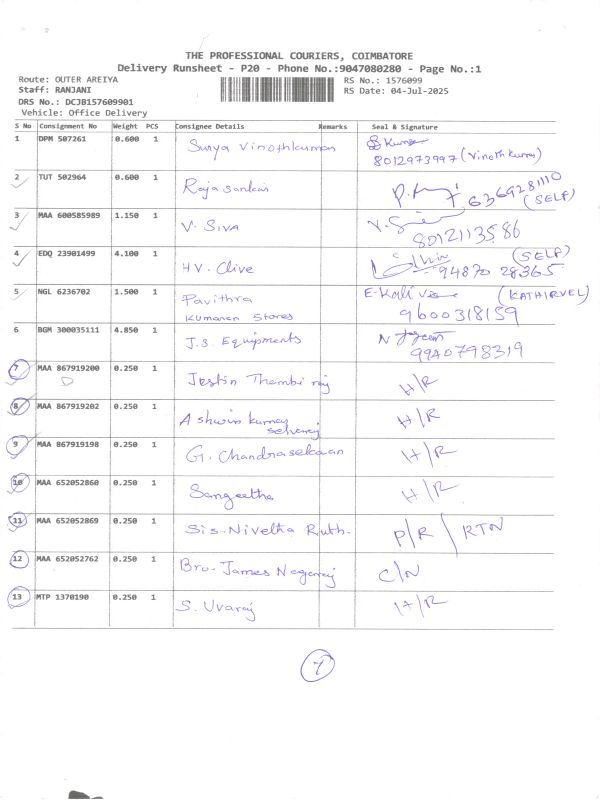 THE PROFESSIONAL COURIERS, COIMBATORE
Delivery Runsheet - P20 - Phone No.:9047080280 - Page No.:1
Route: OUTER AREIYA RS No.: 1576099
Staff: RANJANI RS Date: 04-Jul-2025
DRS No.: DCJB157609901
Vehicle: Office Delivery
S No Consignment No Weight PCS Consignee Details Remarks Seal & Signature
1 DPM 507261 0.600 1 Surya Vinothkumar Kumar
8012973997 (Vinoth Kumar)
2 TUT 502964 0.600 1 Rajasankar
6369281110
(SELF)
3 MAA 600585989 1.150 1 V. SIVA
8012113586
4 EDQ 23901499 4.100 1 HV. Clive (SELF)
94870 28365
5 NGL 6236702 1.500 1 Pavithra E-Kali (KATHIRVEL)
Kumaran Stores 9600318159
6 BGM 300035111 4.850 1 J.S. Equipments N
9940798319
7 MAA 867919200 0.250 1 Jestin Thambi raj H/R
D
8 MAA 867919202 0.250 1 Ashwin kumar H/R
selvaraj
9 MAA 867919198 0.250 1 G. Chandrasekaan H/R
10 MAA 652052860 0.250 1 Sangeetha H/R
11 MAA 652052869 0.250 1 Sis-Nivetha Ruth. P/R / RTN
12 MAA 652052762 0.250 1 Bro-James Nagaraj C/N
13 MTP 1370190 0.250 1 S. Uvaraj H/R
7